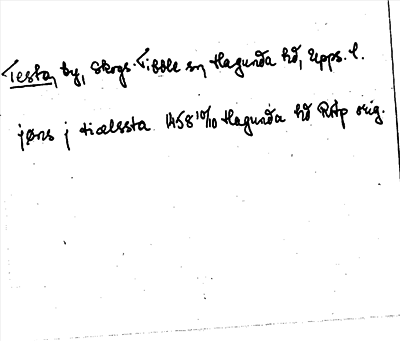 Testa, by, Skogs-Tibble sn, Hagunda hd, Upps. l.
jøns j tiælssta 1458 10/10 Hagunda hd RAp orig.